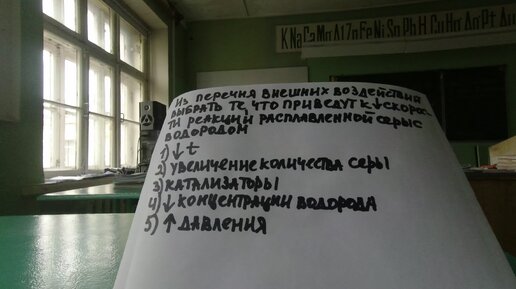 K Na Ca Mg Al Zn Fe Ni Sn Pb H Cu Hg Ag Pt Au
ИЗ ПЕРЕЧНЯ ВНЕШНИХ ВОЗДЕЙСТВИЙ
ВЫБРАТЬ ТЕ, ЧТО ПРИВЕДУТ К ↓ СКОРОС-
ТИ РЕАКЦИИ РАСПЛАВЛЕННОЙ СЕРЫ С
ВОДОРОДОМ
1) ↓ t
2) УВЕЛИЧЕНИЕ КОЛИЧЕСТВА СЕРЫ
3) КАТАЛИЗАТОРЫ
4) ↓ КОНЦЕНТРАЦИИ ВОДОРОДА
5) ↑ ДАВЛЕНИЯ